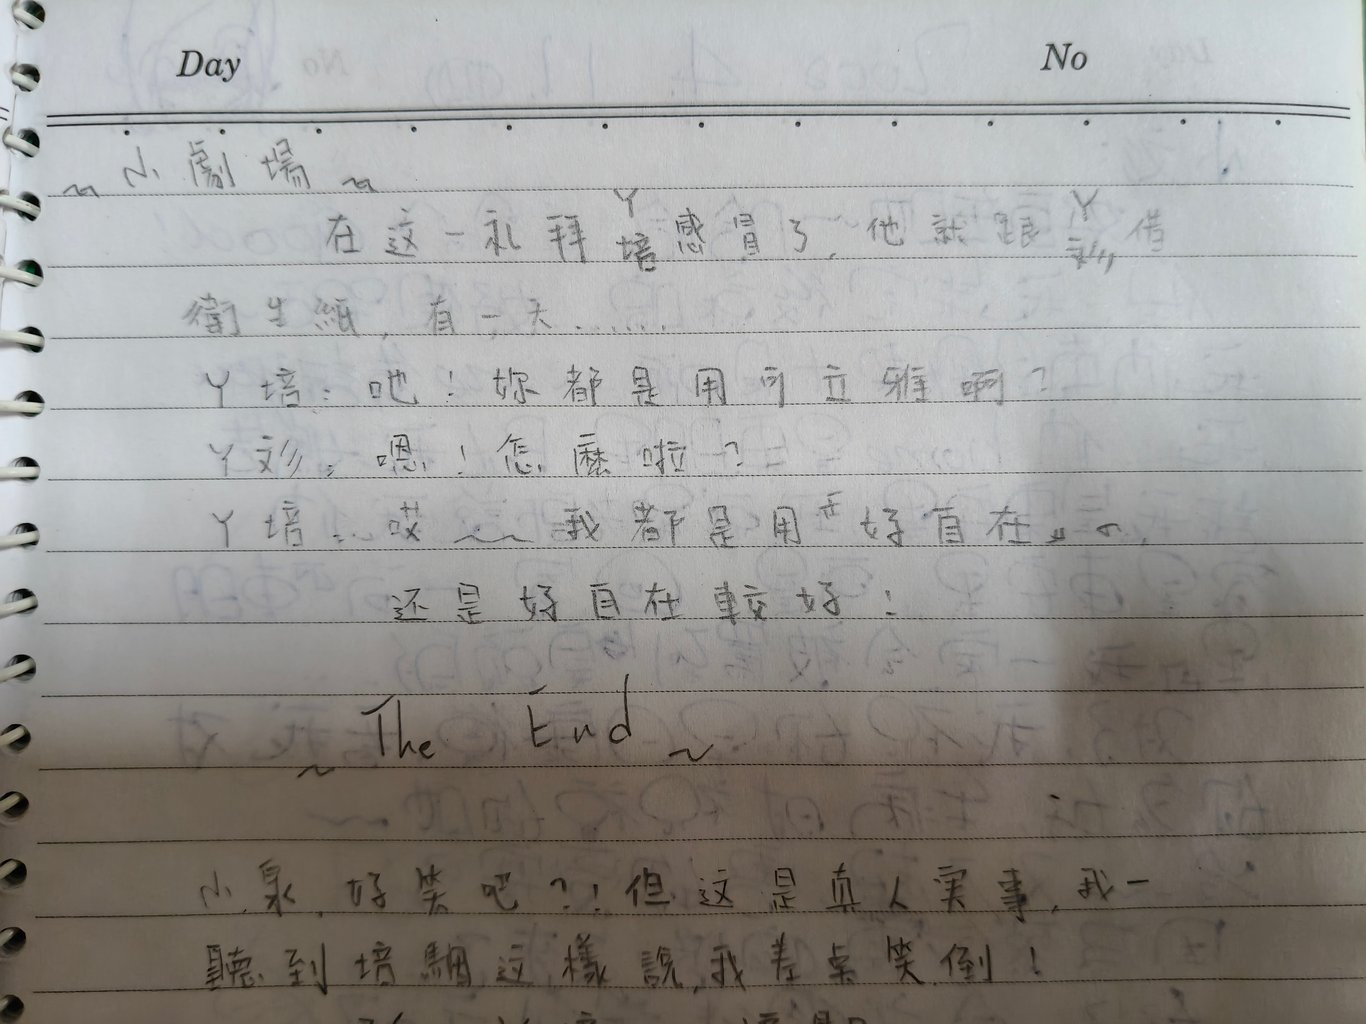 Day No
~小劇場~
在这一礼拜ㄚ培感冒了,他就跟ㄚ彣借
衛生紙,有一天......
ㄚ培:吔!妳都是用可立雅啊?
ㄚ彣:嗯!怎麼啦?
ㄚ培:哎~~我都是用〝好自在〞~,
还是好自在較好!
~The End~
小泉,好笑吧?!但这是真人实事,我一
聽到培 这樣說,我差桌笑倒!